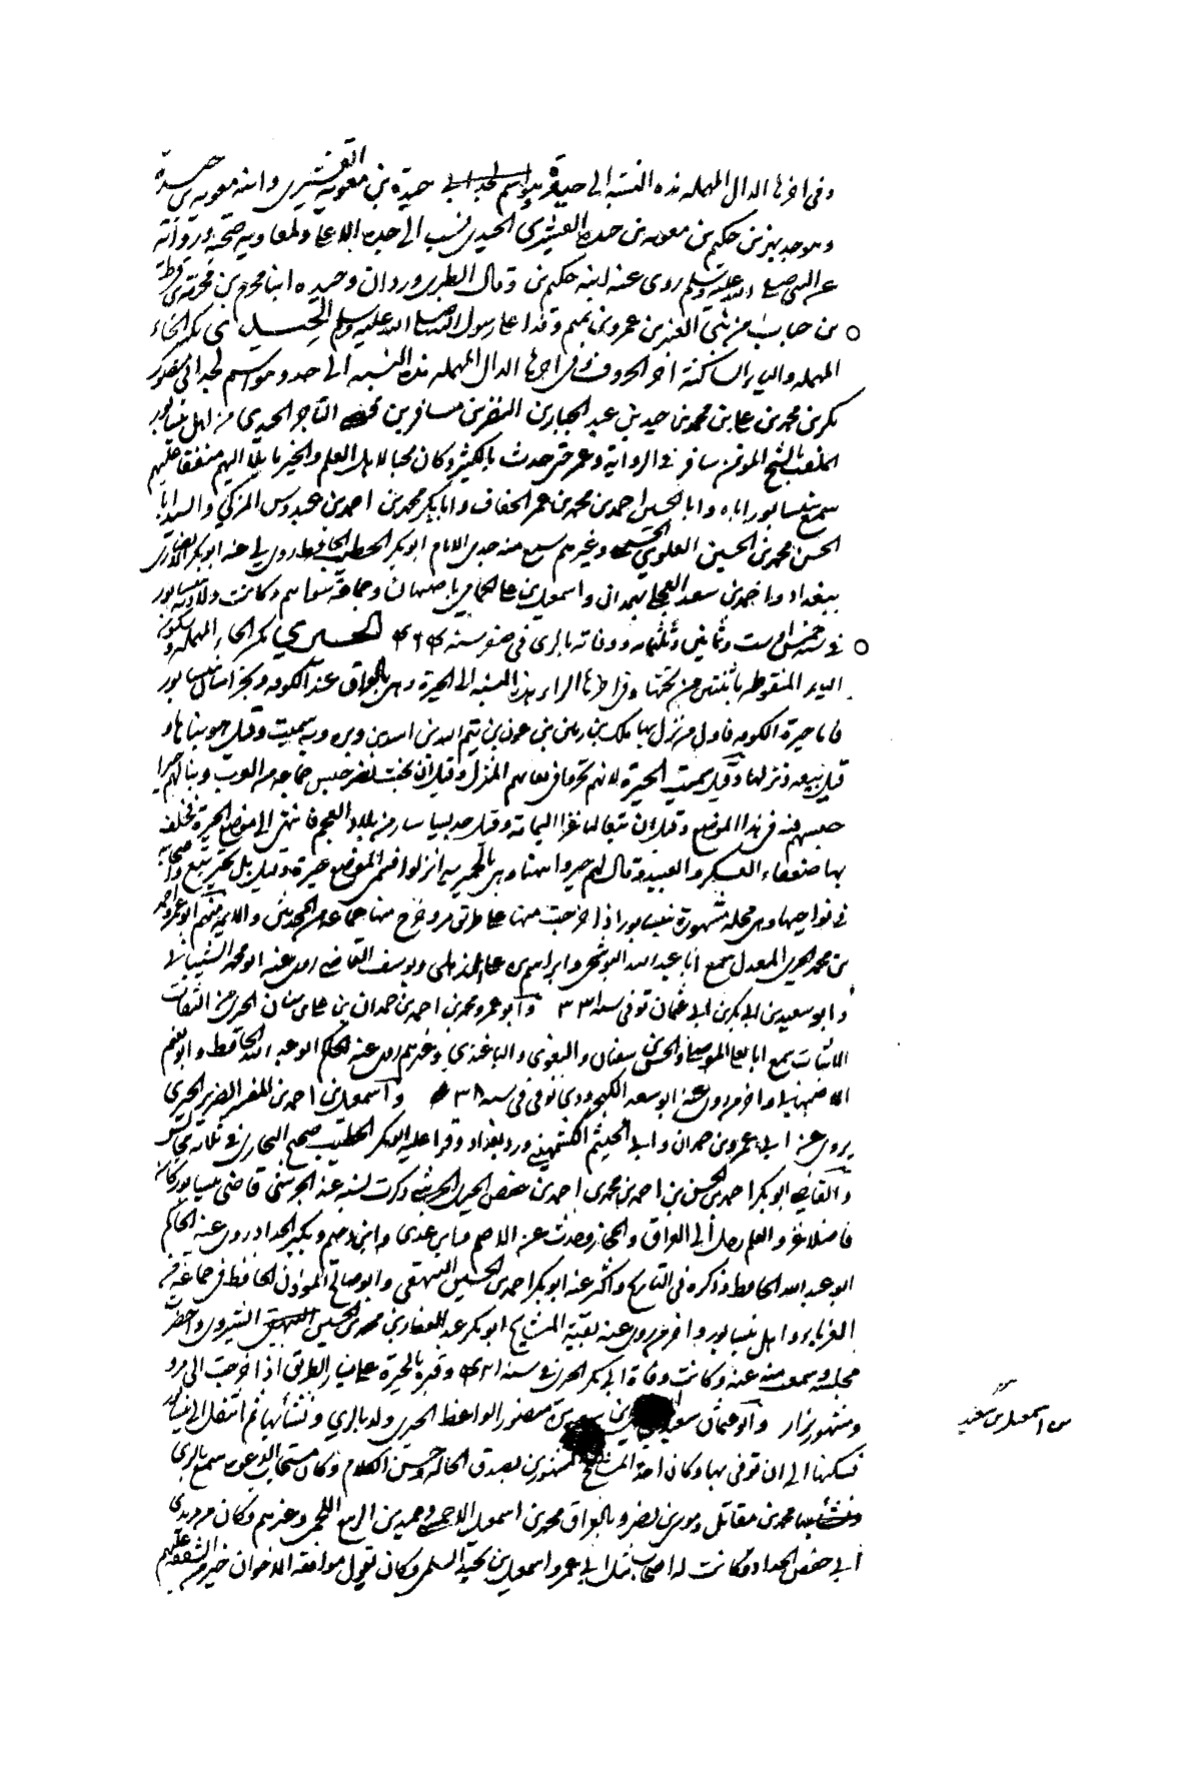 وفى اخرها الدال المهمله هذه النسبة الى حيدة وهو اسم لجد ابى حيدة بن معوية القشيرى وابنه معوية بن حيدة
وهو جد بهز بن حكيم بن معويه بن حيده القشيرى الحيدى نسب الى جده الاعلى ولمعاوية صحبة ورواية
عن النبى صلى الله عليه وسلم روى عنه ابنه حكيم بن وقال الطبرى وردان وحيده ابنا مخرم بن مخرمة بن قرط
بن جناب من بنى العنبر بن عمرو بن تميم وفدا على رسول الله صلى الله عليه وسلم الحيدى بكسر الحاء
المهمله والياء الساكنة اخر الحروف وفى اخرها الدال المهمله هذه النسبه الى حيد وهو اسم لجد ابى منصور
بكر بن محمد بن على بن محمد بن حيد بن عبد الجبار بن النضر بن مسافر بن التاجر الحيدى من اهل نيسابور
الملقب بالشيخ المؤتمن سافر فى الرواية وعمر حتى حدث بالكثير وكان محبا لاهل العلم والخير مائلا اليهم منفقا عليهم
سمع بنيسابور اباه وابا الحسين احمد بن محمد بن عمر الخفاف وابا بكر محمد بن احمد بن عبدوس المزكى والسيد ابا
الحسن محمد بن الحسين العلوى الحسنى وغيرهم سمع منه جدى الامام ابو بكر الخطيب الحافظ روى لى عنه ابو بكر الانصارى
ببغداد واحمد بن سعد العجلى بهمدان واسمعيل بن على الحمامى باصبهان وجماعة سواهم وكانت ولادته بنيسابور
فى سنة خمس او ست وثمانين وثلثمايه ووفاته بالرى فى صفر سنه ٤٦٤ الحيري بكسر الحاء المهملة وسكون
الياء المنقوطه باثنتين من تحتها وفى اخرها الراء هذه النسبه الى الحيرة وهى بالعراق عند الكوفه وبخراسان بنيسابور
فاما حيرة الكوفه فاول من نزل بها مالك بن زهير بن عمرو بن فهم بن تيم الله بن اسد بن وبره وبه سميت وقيل هو بناها
قبل نبيعه ونزلها وقيل سميت الحيرة لانهم تحيروا المنزل وقيل ان بخت نصر حبس جماعه من العرب وبنا لهم حيرا
حبسهم فيه فى هذا الموضع وقيل ان تبعا لما غزا اليمامة وقيل سار من بلاد العجم فانتهى الى موضع الحيرة فخلف
بها ضعفاء العسكر والعبيد وقال لهم حيروا ههنا وهى بالحميريه انزلوا فسمى الموضع حيرة وقيل بل تحير تبع واصحابه
فى نواحيها وهى محله مشهورة بنيسابور اذا خرجت منها على طريق مرو خرج منها جماعه من المحدثين والائمة منهم ابو عمرو احمد
بن محمد الحرى المعدل سمع ابا عبد الله البوشنجى وابراهيم بن على الذهلى ويوسف القاضى روى عنه ابو محمد الشيبانى
وابو سعيد بن ابى بكر بن ابى عثمان توفى سنه ٣٣١ وابو عمرو محمد بن احمد بن حمدان بن على بن سنان الحيرى من الثقات
الاثبات سمع ابا يعلى الموصلى والحسن بن سفيان والبغوى والباغندى وغيرهم روى عنه الحاكم ابو عبد الله الحافظ وابو نعيم
الاصبهانى واخر من روى عنه ابو سعد الكنجرودى توفى فى سنه واسمعيل بن احمد بن المفسر الضرير الحيرى
يروى عن ابى عمرو بن حمدان وابى الهيثم الكشميهنى ورد بغداد وقرا عليه ابو بكر الخطيب صحيح البخارى فى ثلاثة مجالس
والقاضى ابو بكر احمد بن الحسن بن احمد بن محمد بن احمد بن حفص الحيرى الحرشى ذكرت نسبه عند الجرشى قاضى نيسابور كان
فاضلا غزير العلم رحل الى العراق والحجاز وحدث عن الاصم وابن عدى وابن دحيم وبكير الحداد روى عنه الحاكم
ابو عبد الله الحافظ وذكره فى التاريخ واكثر عنه ابو بكر احمد بن الحسين البيهقى وابو صالح المؤذن الحافظ فى جماعة من
الغرباء واهل نيسابور واخر من روى عنه بقية المشايخ ابو بكر عبد الغفار بن محمد بن الحسين الشيروى واحضرت
مجلسه وسمعت منه عنه وكانت وفاة ابى بكر الحيرى فى سنه ٤٢١ وقبره بالحيرة على يسار الطريق اذا خرجت الى مرو
ومشهور يزار وابو عثمان سعيد بن منصور الواعظ الحيرى ولد بالرى ونشأ بها ثم انتقل الى نيسابور
فسكنها الى ان توفى بها وكان احد المشايخ المشهورين بصدق الحاله وحسن الكلام وكان مستجاب الدعوه سمع بالرى
محمد بن مقاتل وموسى بن نصر وبالعراق محمد بن اسمعيل الاحمسى وحميد بن الربيع اللخمى وغيرهم وكان من مريدى
ابى حفص الحداد وكانت له اصحاب مثل ابى عمرو اسمعيل بن نجيد السلمى وكان يقول موافقه الاخوان خير من الشفقة عليهم
بن اسمعيل بن سعيد